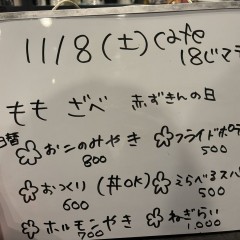 11/8(土)cafe
18じマデ
もも ざべ 赤ずきんの日
日替
おこのみやき
800
フライドポテ
500
おつくり(丼OK)
600
えらべるスパ
500
ホルモンやき
700
ねぎらい
1,000